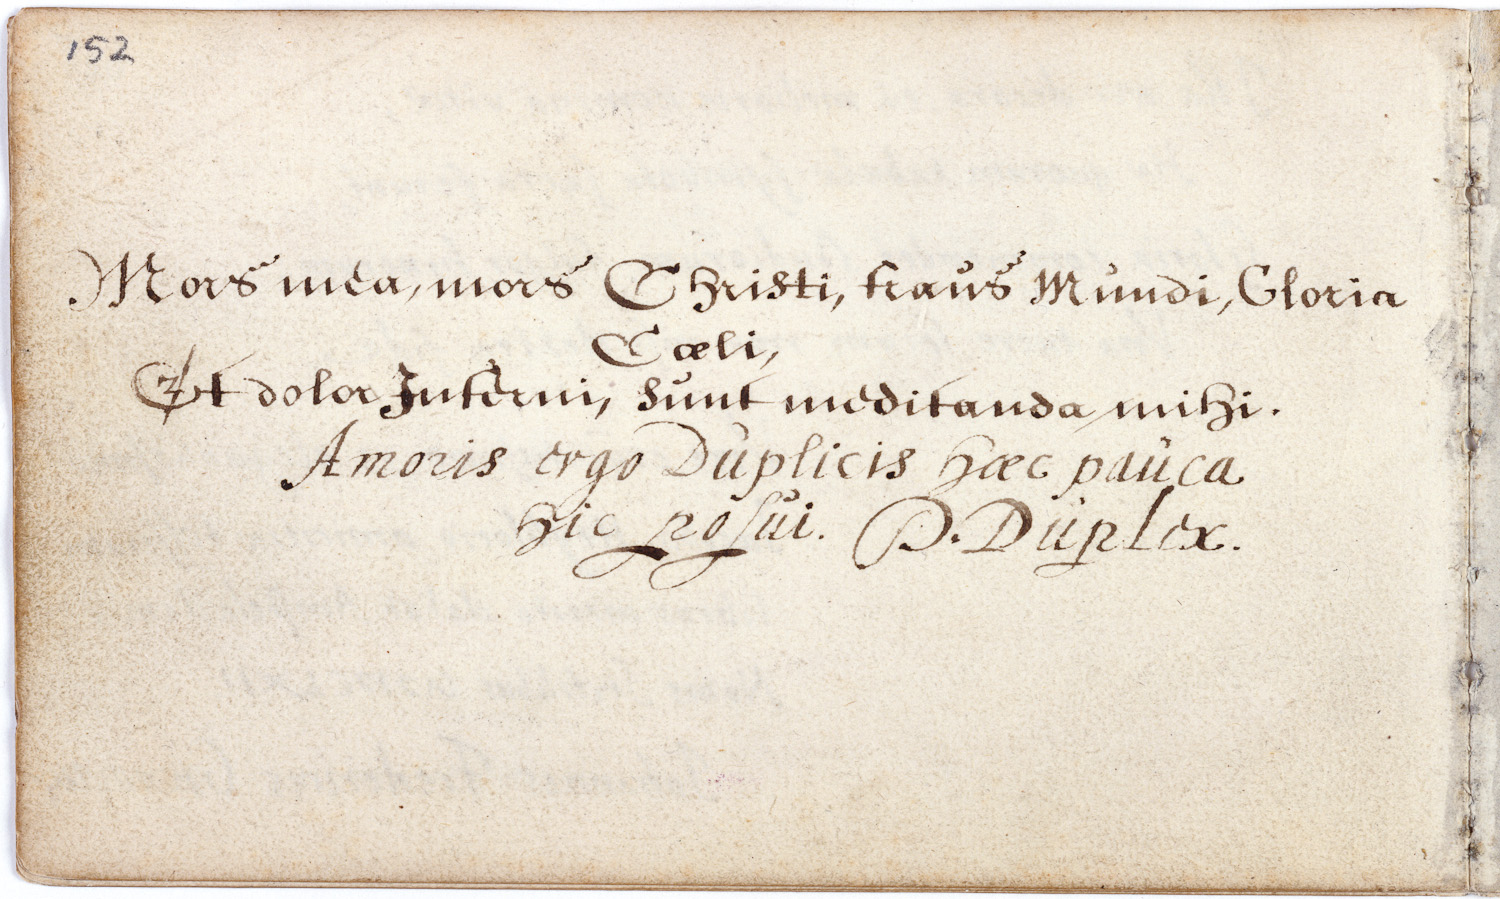 152
Mors mea, mors Christi, fraus Mundi, Gloria
Cœli,
Et dolor Inferni, sunt meditanda mihi.
Amoris ergo Duplicis hæc pauca
hic posui. D. Duplex.